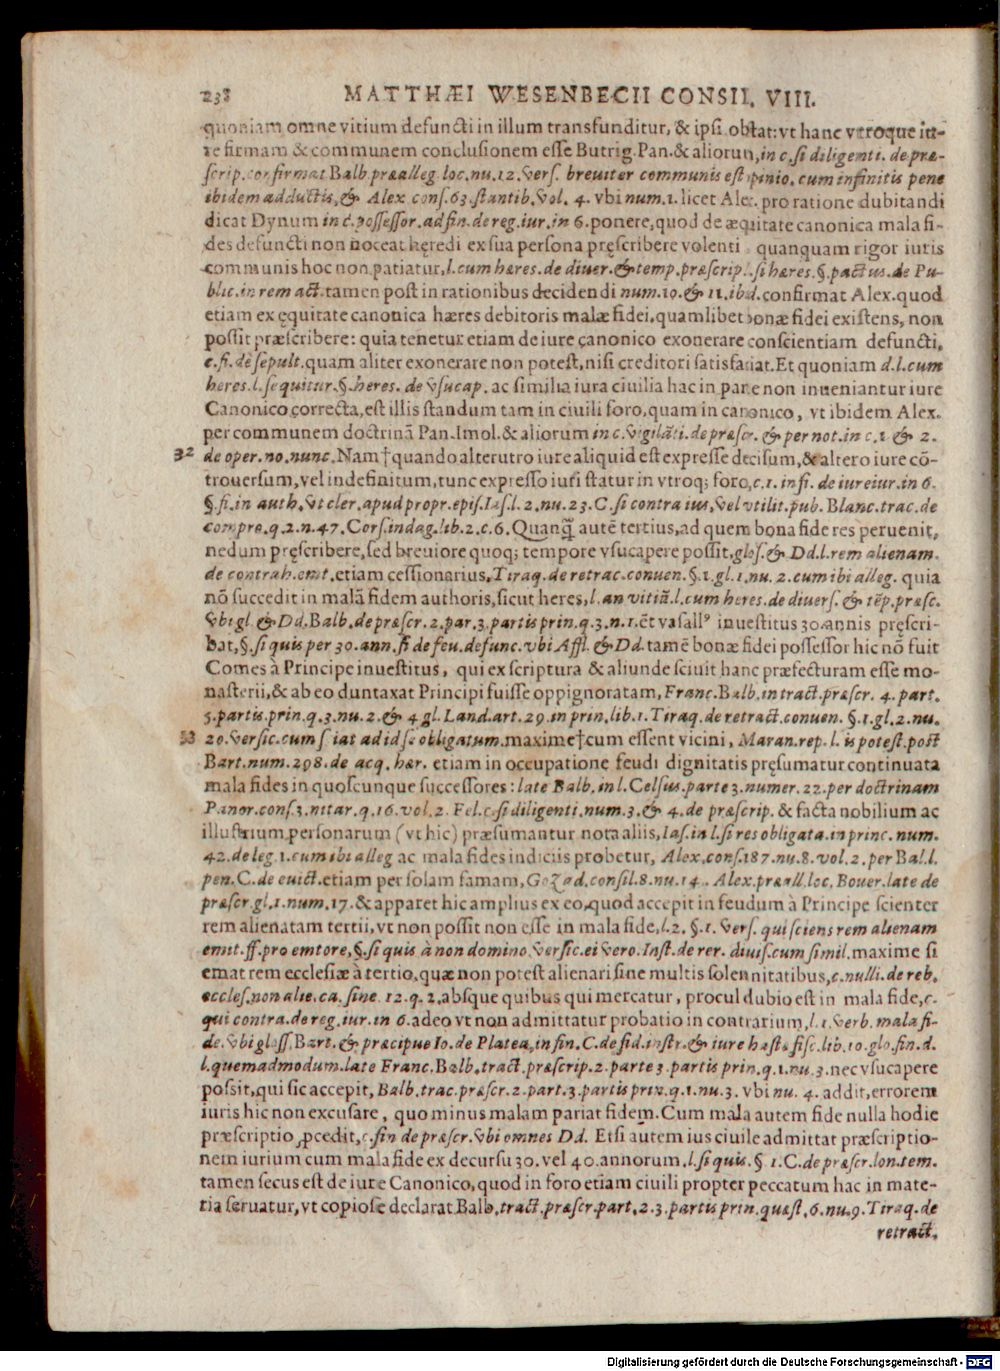 238 MATTHÆI WESENBECII CONSIL. VIII.
quoniam omne vitium defuncti in illum transfunditur, & ipsi obstat: vt hanc vtroque iu-
re firmam & communem conclusionem esse Butrig. Pan. & aliorum, in c. si diligenti. de præ-
scrip. confirmat Balb. præalleg. loc. nu. 12. vers. breuiter communis est opinio. cum infinitis pene
ibidem adductis, & Alex cons. 63. stantib. vol. 4. vbi num. 1. licet Alex. pro ratione dubitandi
dicat Dynum in c. possessor. ad fin. de reg. iur. in 6. ponere, quod de æquitate canonica mala fi-
des defuncti non noceat hęredi ex sua persona pręscribere volenti quanquam rigor iuris
communis hoc non patiatur, l. cum hæres. de diuer. & temp. præscrip. l. si hæres. §. pactus. de Pu-
blic. in rem act. tamen post in rationibus decidendi num. 10. & 11. ibid. confirmat Alex. quod
etiam ex ęquitate canonica hæres debitoris malæ fidei, quamlibet bonæ fidei existens, non
possit præscribere: quia tenetur etiam de iure canonico exonerare conscientiam defuncti,
c. fi. de sepult. quam aliter exonerare non potest, nisi creditori satisfaciat. Et quoniam d. l. cum
heres. l. sequitur. §. heres. de vsucap. ac similia iura ciuilia hac in parte non inueniantur iure
Canonico correcta, est illis standum tam in ciuili foro, quam in canonico, vt ibidem Alex.
per communem doctrinã Pan. Imol. & aliorum in c. vigilãti. de præscr. & per not. in c. 1. & 2.
32 de oper. no. nunc. Nam † quando alterutro iure aliquid est expresse decisum, & altero iure cõ-
trouersum, vel indefinitum, tunc expresso iuri statur in vtroq; foro, c. 1. in fi. de iureiur. in 6.
§. fi. in auth. vt cler. apud propr. epis. Ias. l. 2. nu. 23. C. si contra ius, vel vtilit. pub. Blanc. trac. de
compro. q. 2. n. 47. Cors. indag. lib. 2. c. 6. Quanq̃ autẽ tertius, ad quem bona fide res peruenit,
nedum pręscribere, sed breuiore quoq; tempore vsucapere possit, glos. & Dd. l. rem alienam.
de contrah. emt. etiam cessionarius, Tiraq. de retrac. conuen. §. 1. gl. 1. nu. 2. cum ibi alleg. quia
nõ succedit in malã fidem authoris, sicut heres, l. an vitiũ. l. cum heres. de diuers. & tẽp. præsc.
vbi gl. & Dd. Balb. de præscr. 2. par. 3. partis prin. q. 3. n. 1. ẽt vasallꝰ inuestitus 30. annis pręscri-
bat, §. si quis per 30. ann. si de feu. defunc. vbi Affl. & Dd. tamẽ bonæ fidei possessor hic nõ fuit
Comes à Principe inuestitus, qui ex scriptura & aliunde sciuit hanc præfecturam esse mo-
nasterii, & ab eo duntaxat Principi fuisse oppignoratam, Franc. Balb. in tract. præscr. 4. part.
5. partis prin. q. 3. nu. 2. & 4. gl. Land. art. 29. in prin. lib. 1. Tiraq. de retract. conuen. §. 1. gl. 2. nu.
33 20. versic. cum sciat ad id se obligatum. maxime † cum essent vicini, Maran. rep. l. is potest. post
Bart. num. 298. de acq. hær. etiam in occupatione feudi dignitatis pręsumatur continuata
mala fides in quoscunque successores: late Balb. in l. Celsus. parte 3. numer. 22. per doctrinam
Panor. cons. 3. nttar. q. 16. vol. 2. Fel. c. si diligenti, num. 3. & 4. de præscrip. & facta nobilium ac
illustrium personarum (vt hic) præsumantur nota aliis, Ias. in l. si res obligata. in princ. num.
42. de leg. 1. cum ibi alleg ac mala fides indiciis probetur, Alex. cons. 187. nu. 8. vol. 2. per Bal. l.
pen. C. de euict. etiam per solam famam, Gozad. consil. 8. nu. 14. Alex. præall. loc. Bouer. late de
præscr. gl. 1. num. 17. & apparet hic amplius ex eo, quod accepit in feudum à Principe scienter
rem alienatam tertii, vt non possit non esse in mala fide, l. 2. §. 1. vers. qui sciens rem alienam
emit. ff. pro emtore, §. si quis à non domino, versic. ei vero. Inst. de rer. diuis. cum simil. maxime si
emat rem ecclesiæ à tertio, quæ non potest alienari sine multis solennitatibus, c. nulli. de reb.
eccles. non alie. ca. sine 12. q. 2. absque quibus qui mercatur, procul dubio est in mala fide, c.
qui contra. de reg. iur. in 6. adeo vt non admittatur probatio in contrarium, l. 1. verb. mala fi-
de. vbi gloss. Bart. & præcipue Io. de Platea, in fin. C. de fid. instr. & iure hastæ fisc. lib. 10. glo. fin. d.
l. quemadmodum. late Franc. Balb. tract. præscrip. 2. parte 3. partis prin. q. 1. nu. 3. nec vsucapere
possit, qui sic accepit, Balb. trac. præscr. 2. part. 3. partis prin. q. 1. nu. 3. vbi nu. 4. addit, errorem
iuris hic non excusare, quo minus malam pariat fidem. Cum mala autem fide nulla hodie
præscriptio ꝓcedit, c. fin de præscr. vbi omnes Dd. Etsi autem ius ciuile admittat præscriptio-
nem iurium cum mala fide ex decursu 30. vel 40. annorum, l. si quis. § 1. C. de præscr. lon. tem.
tamen secus est de iure Canonico, quod in foro etiam ciuili propter peccatum hac in mate-
ria seruatur, vt copiose declarat Balb. tract. præscr. part. 2. 3. partis prin. quæst. 6. nu. 9. Tiraq. de
retract.
Digitalisierung gefördert durch die Deutsche Forschungsgemeinschaft - DFG